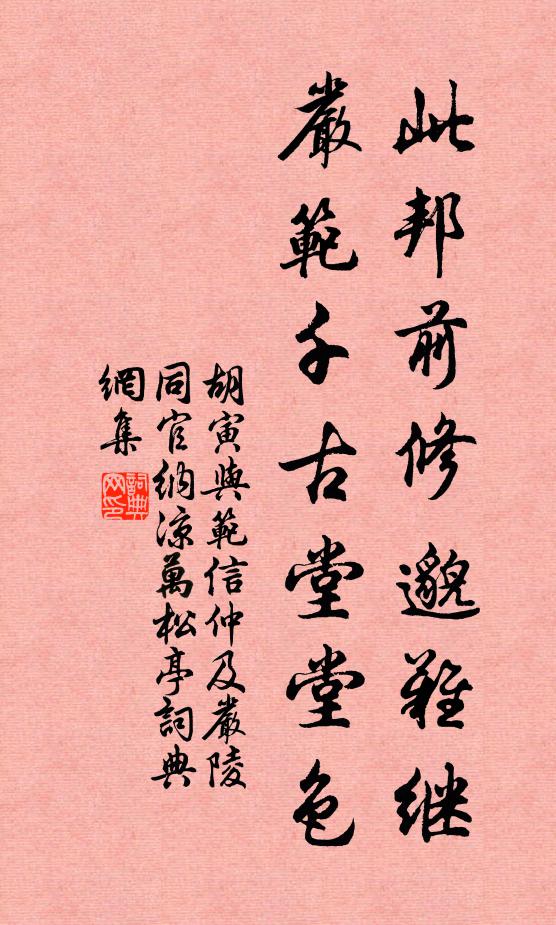 此邦前修邈難继
嚴範千古堂堂色
胡寅與範信仲及嚴陵
同官納凉萬松亭詞典
網集
詞典网印